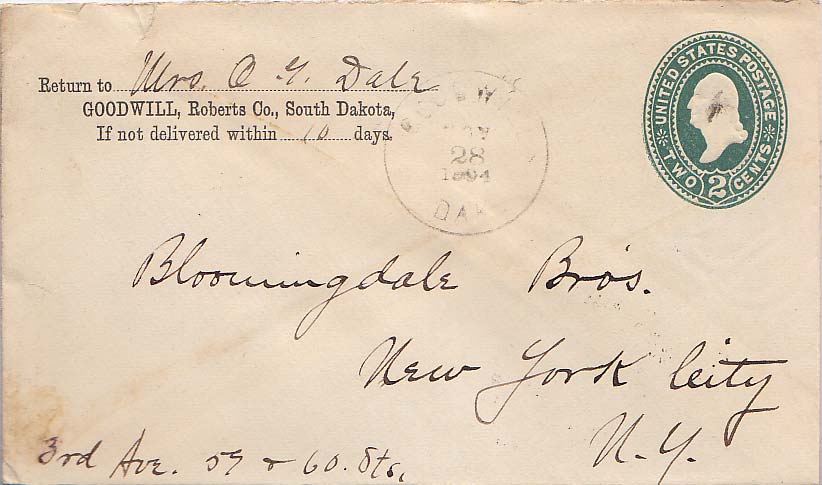 Return to Mrs. C. G. Dale
GOODWILL, Roberts Co., South Dakota,
If not delivered within 10 days.
28
1894
DAK
UNITED STATES POSTAGE
TWO 2 CENTS
Bloomingdale Bro's.
New York City
N. Y.
3rd Ave. 59 & 60. Sts.